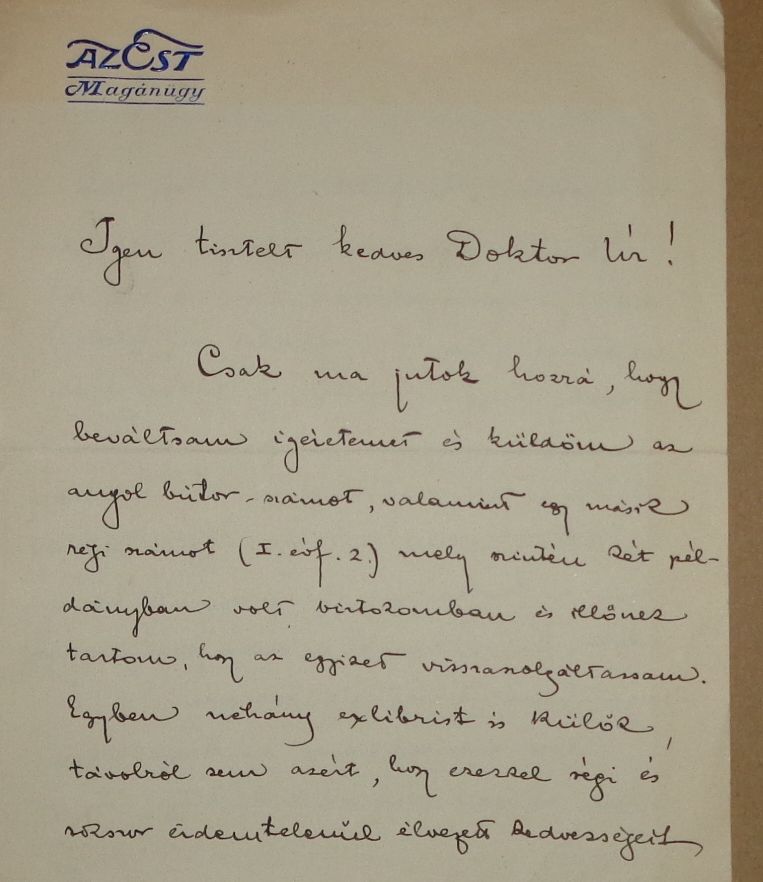 AZ EST
Magánügy
Igen tisztelt kedves Doktor Úr!
Csak ma jutok hozzá, hogy
beváltsam igéretemet és küldöm az
angol bútor-számot, valamint egy másik
régi számot (I. évf. 2.) mely szintén két pél-
dányban volt birtokomban és illőnek
tartom, hogy az egyiket visszaszolgáltassam.
Egyben néhány exlibrist is külök,
távolról sem azért, hogy ezekkel régi és
sokszor érdemtelenül élvezett kedvességeit